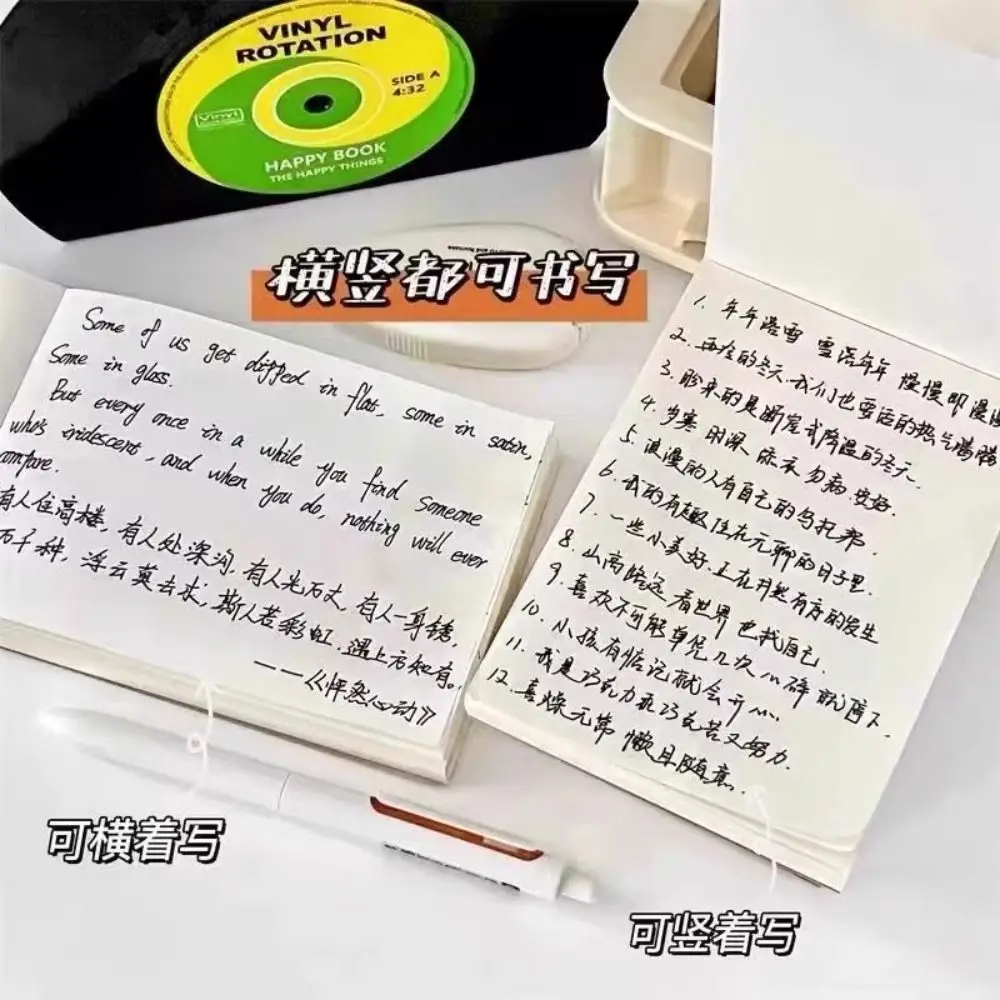 VINYL
ROTATION
SIDE A
4:32
Vinyl
HAPPY BOOK
THE HAPPY THINGS
横竖都可书写
Some of us get dipped in flat, some in satin,
Some in gloss.
But every once in a while you find someone
who's iridescent, and when you do, nothing will ever
compare.
有人住高楼，有人处深沟，有人光万丈，有人一身锈，
万千种，浮云莫去求，斯人若彩虹，遇上方知有。
——《怦然心动》
1. 年年落雪 雪落年年 慢慢即漫漫
2. 西安的冬天.我们也要活的热气腾腾
3. 盼来的是断崖式降温的冬天.
4. 岁寒 时深 添衣 勿病 安好.
5. 浪漫的人有自己的乌托邦.
6. 我的有趣住在无聊的日子里.
7. 一些小美好.正在井然有序的发生
8. 山高路远 看世界 也找自己.
9. 喜欢不可能单凭几次心碎就停下.
10. 小孩有惦记就会开心
11. 我是巧克力 在巧克苦又努力.
12. 喜燥无常 懒且随意.
可横着写
可竖着写